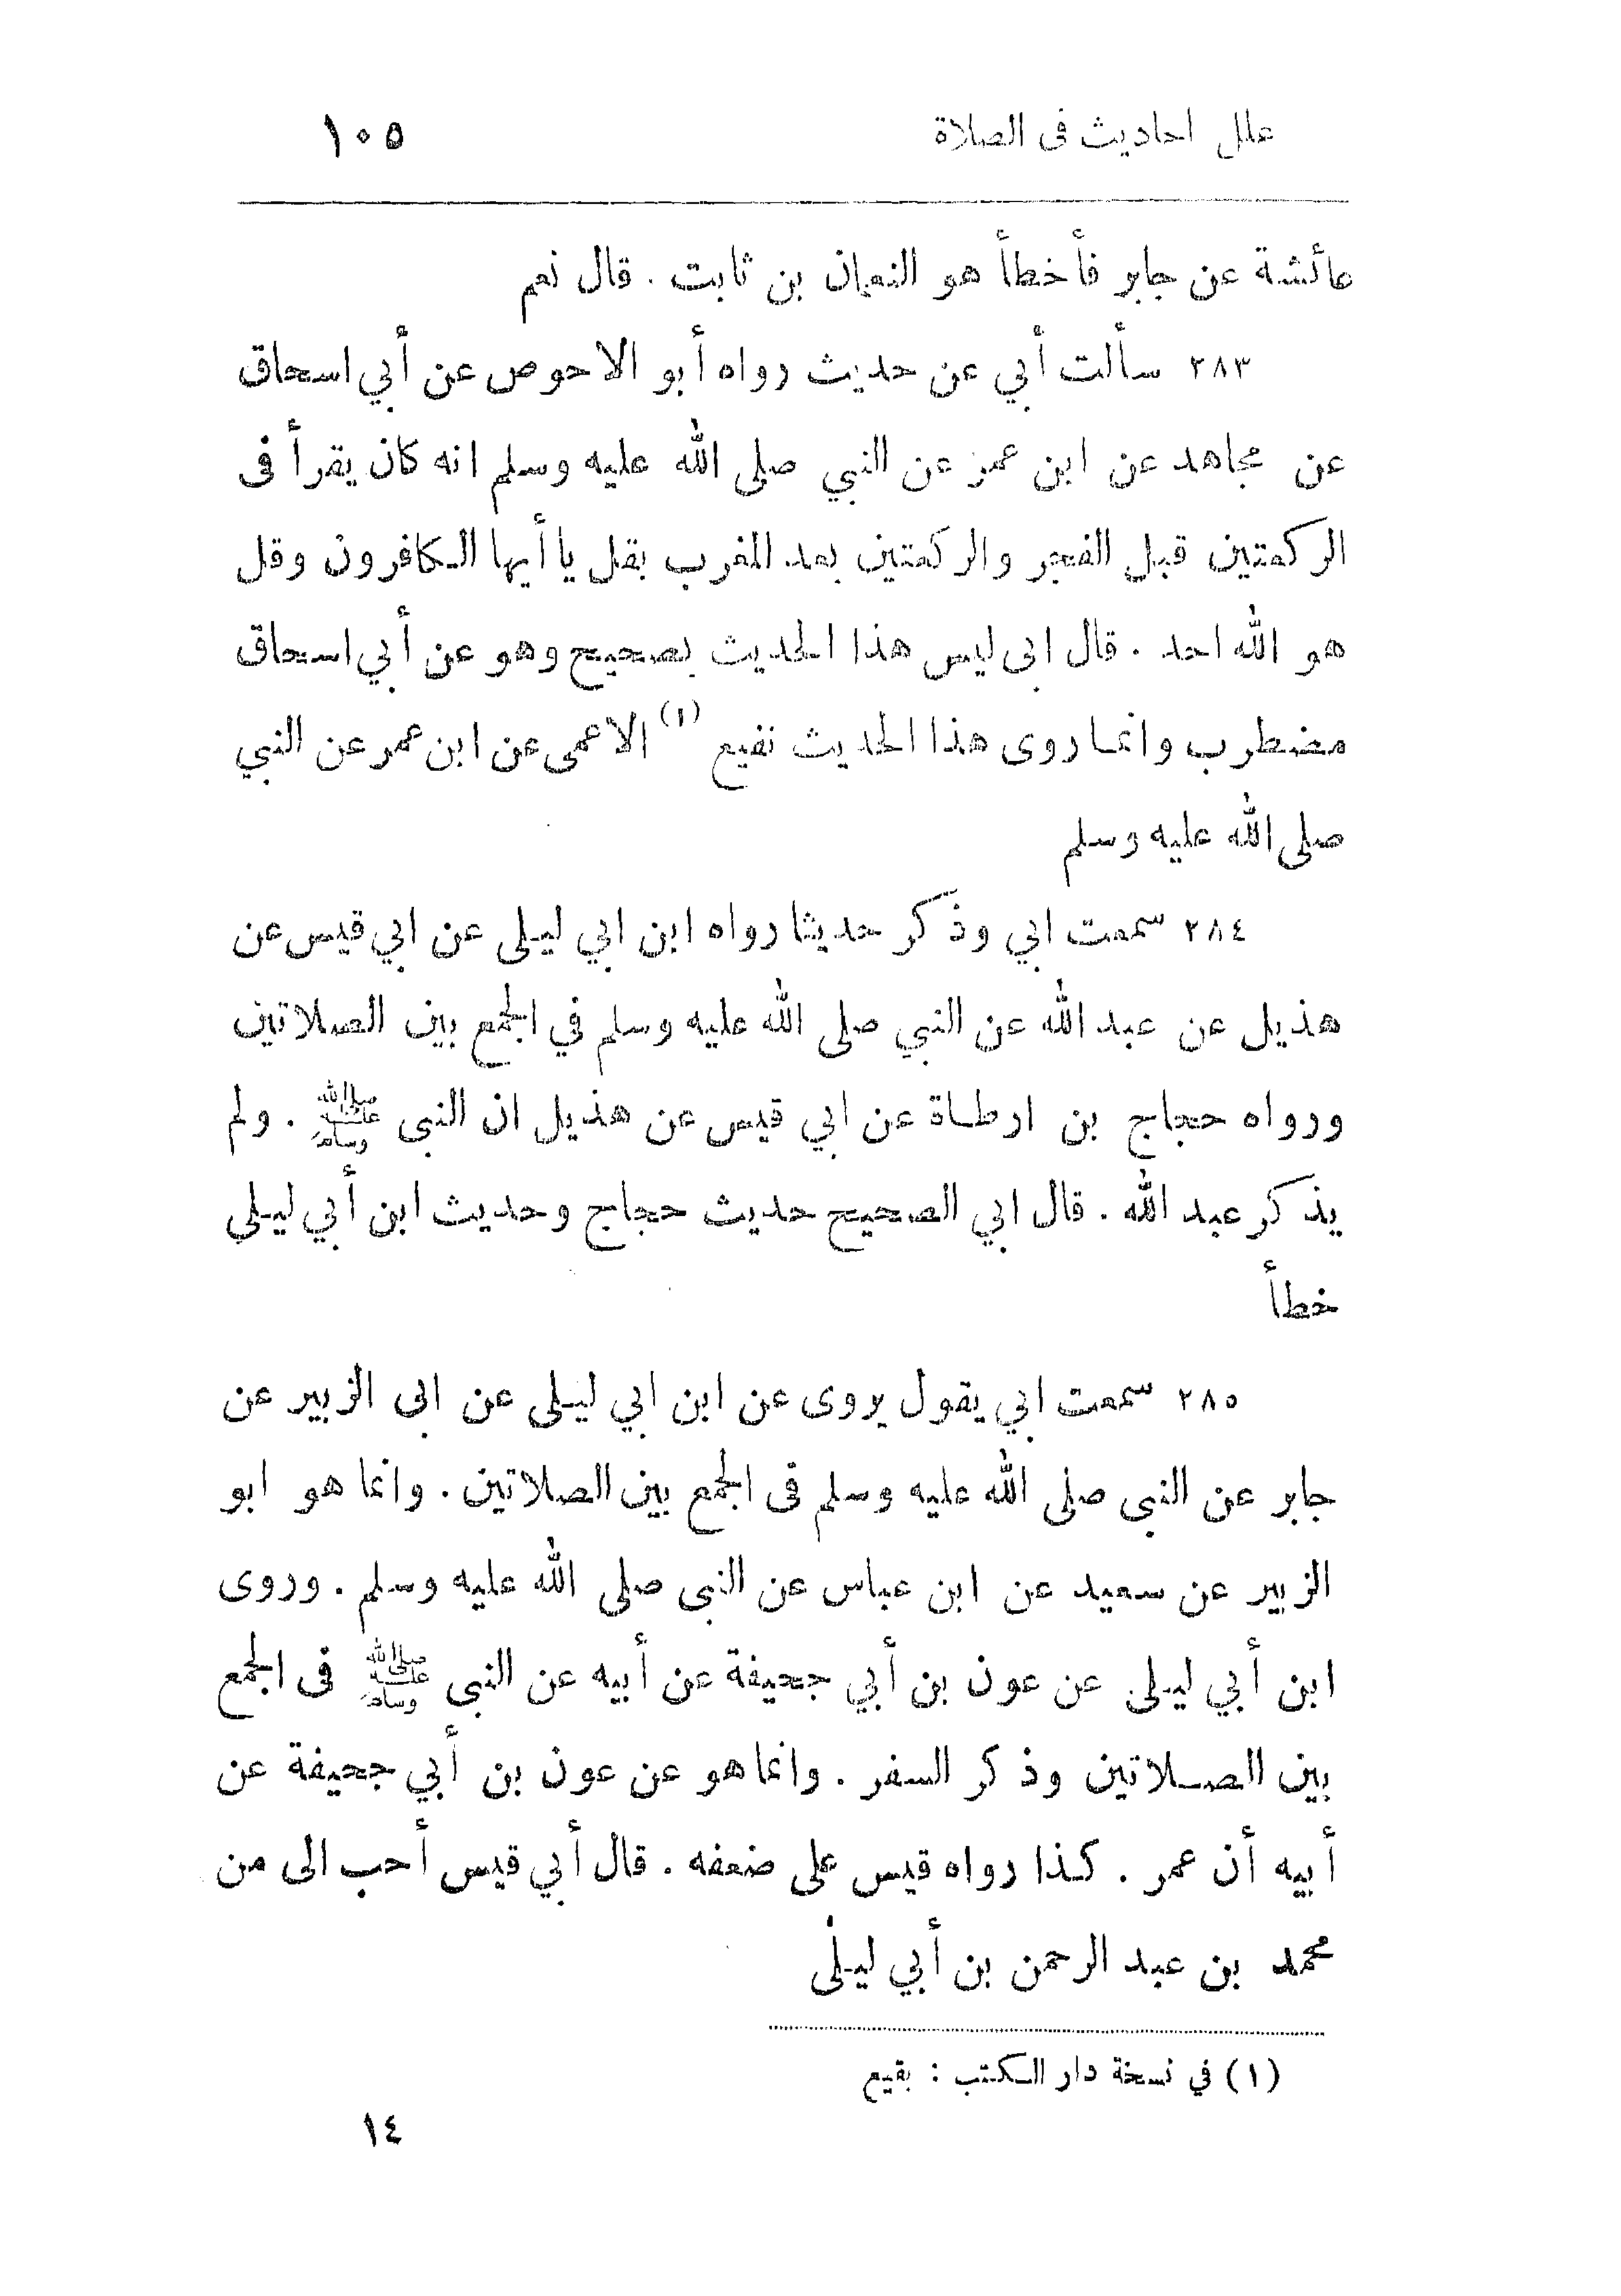 علل احاديث فى الصلاة ١٠٥
عائشة عن جابر فأخطأ هو النعمان بن ثابت . قال نعم
٢٨٣ سألت أبي عن حديث رواه أبو الاحوص عن أبي اسحاق
عن مجاهد عن ابن عمر عن النبي صلى الله عليه وسلم انه كان يقرأ فى
الركعتين قبل الفجر والركعتين بعد المغرب بقل يا أيها الكافرون وقل
هو الله احد . قال ابى ليس هذا الحديث بصحيح وهو عن أبي اسحاق
مضطرب وانما روى هذا الحديث نفيع (١) الاعمى عن ابن عمر عن النبي
صلى الله عليه وسلم
٢٨٤ سمعت ابي وذكر حديثا رواه ابن ابي ليلى عن ابي قيس عن
هذيل عن عبد الله عن النبي صلى الله عليه وسلم في الجمع بين الصلاتين
ورواه حجاج بن ارطاة عن ابي قيس عن هذيل ان النبى ﷺ . ولم
يذكر عبد الله . قال ابي الصحيح حديث حجاج وحديث ابن أبي ليلى
خطأ
٢٨٥ سمعت ابي يقول يروى عن ابن ابي ليلى عن ابى الزبير عن
جابر عن النبى صلى الله عليه وسلم فى الجمع بين الصلاتين . وانما هو ابو
الزبير عن سعيد عن ابن عباس عن النبى صلى الله عليه وسلم . وروى
ابن أبي ليلى عن عون بن أبي جحيفة عن أبيه عن النبى ﷺ فى الجمع
بين الصلاتين وذكر السفر . وانما هو عن عون بن أبي جحيفة عن
أبيه أن عمر . كذا رواه قيس على ضعفه . قال أبي قيس أحب الى من
محمد بن عبد الرحمن بن أبي ليلى
(١) في نسخة دار الكتب : بقيع
١٤